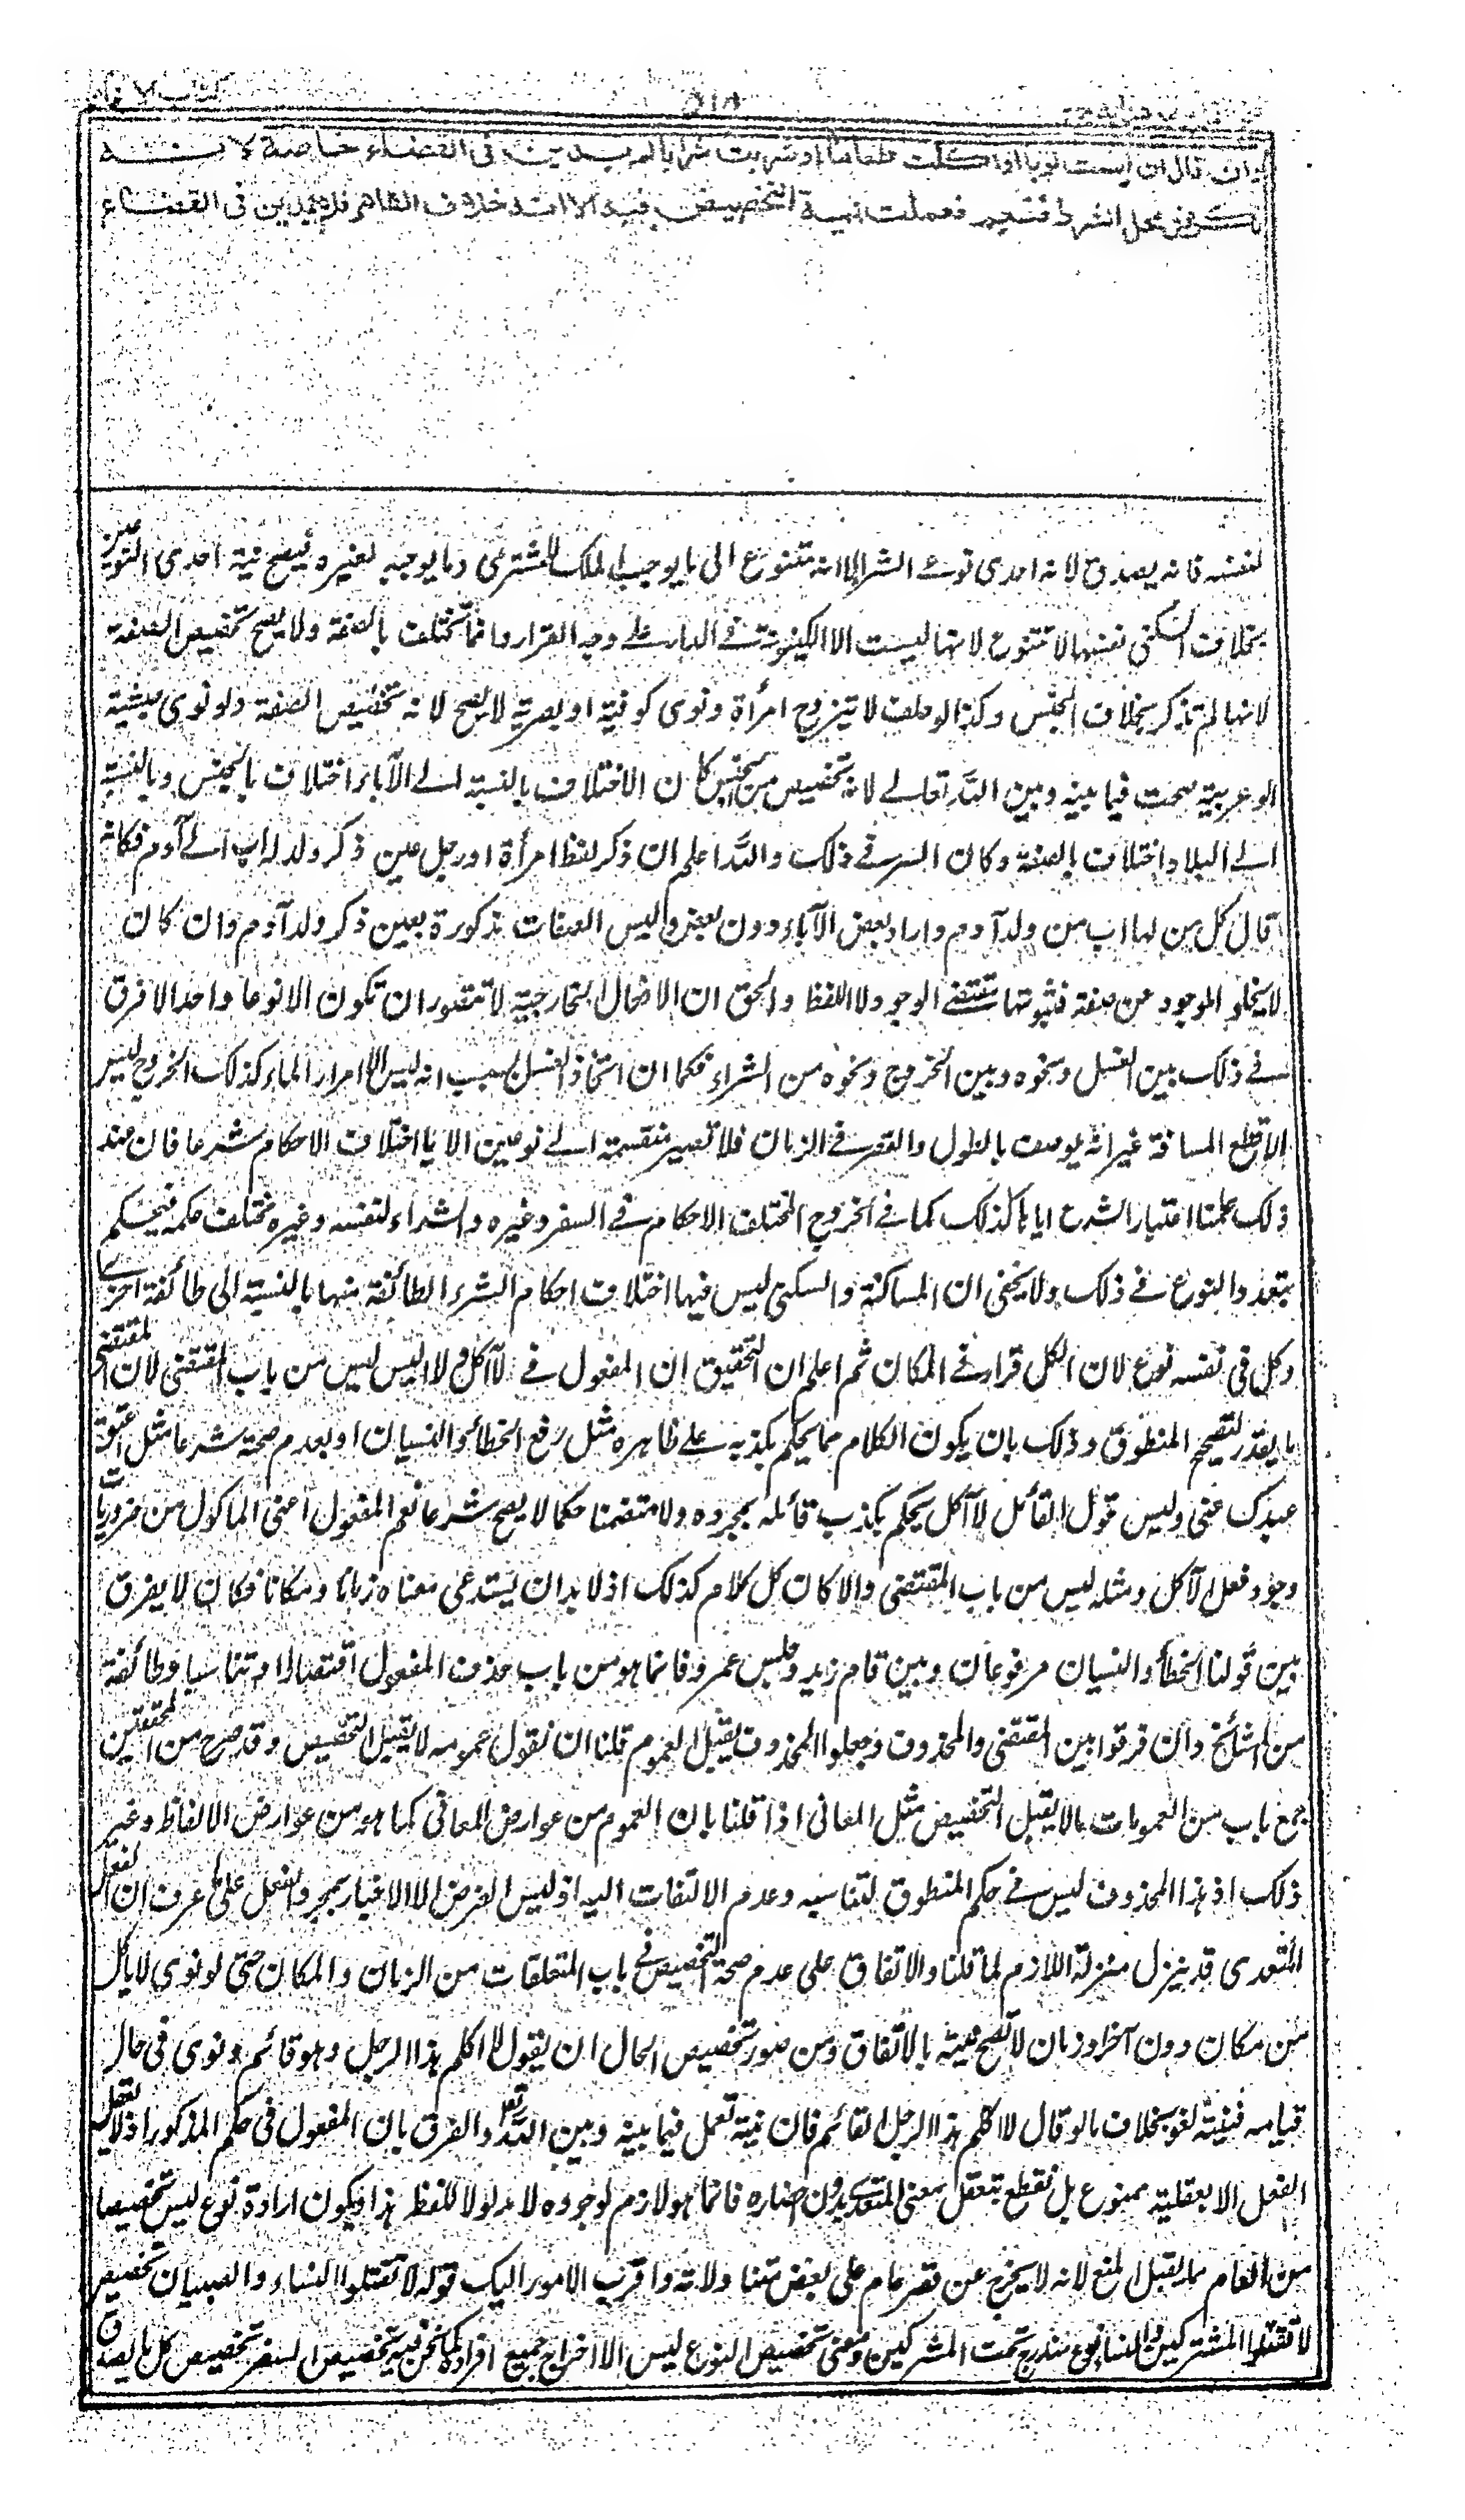 وان قال ان لبست ثوبا او اكلت طعاما او شربت شرابا لم يدين فى القضاء خاصة لانه
نكرة فى محل الشرط فتعم فعملت نية التخصيص فيه الا انه خلاف الظاهر فلا يدين فى القضاء
لنفسه فانه يصدق لانه احدى نوعى الشراء لانه متنوع الى ما يوجب الملك للمشترى وما يوجبه لغيره فيصح نية احدى النوعين
بخلاف السكنى نفسها لا تتنوع لانها ليست الا الكينونة فى الدار على وجه القرار وانما تختلف بالصفة ولا يصح تخصيص الصفة
لانها لم تذكر بخلاف الجنس وكذا لو حلف لا يتزوج امرأة ونوى كوفية او بصرية لا يصح لانه تخصيص الصفة ولو نوى حبشية
او عربية صحت فيما بينه وبين الله تعالى لانه تخصيص من الجنس كان الاختلاف بالنسبة الى الآباء اختلاف بالجنس وبالنسبة
الى البلاد اختلاف بالصفة وكان السر فى ذلك والله اعلم ان ذكر لفظ امرأة او رجل عين ذكر ولد له اب الى آدم فكانه
قال كل من لها اب من ولد آدم واراد بعض الآباء دون بعض وليس الصفات مذكورة بعين ذكر ولد آدم وان كان
لا يخلو الموجود عن صفة فثبوتها مقتضى الوجود لا اللفظ والحق ان الافعال الخارجية لا تتصور ان تكون الا نوعا واحدا لا فرق
فى ذلك بين الغسل ونحوه وبين الخروج ونحوه من الشراء فكما ان اتحاد الغسل بسبب انه ليس الا امرار الماء كذلك الخروج ليس
الا قطع المسافة غير انه يوصف بالطول والقصر فى الزمان فلا تصير منقسمة الى نوعين الا باختلاف الاحكام شرعا فان عند
ذلك علمنا اعتبار الشرع اياها كذلك كما فى الخروج المختلف الاحكام فى السفر وغيره والشراء لنفسه وغيره مختلف حكمه فيحكم
بتعدد النوع فى ذلك ولا يخفى ان المساكنة والسكنى ليس فيها اختلاف احكام الشرع لطائفة منها بالنسبة الى طائفة اخرى
وكل فى نفسه نوع لان الكل قرار فى المكان ثم اعلم ان التحقيق ان المفعول فى لا آكل ولا البس ليس من باب المقتضى لان المقتضى
ما يقدر لتصحيح المنطوق وذلك بان يكون الكلام مما يحكم بكذبه على ظاهره مثل رفع الخطأ والنسيان او بعدم صحته شرعا مثل اعتق
عبدك عنى وليس قول القائل لا آكل يحكم بكذب قائله بمجرده ولا متضمنا حكما لا يصح شرعا نعم المفعول اعنى الماكول من ضروريات
وجود فعل الآكل ومثله ليس من باب المقتضى والا كان كل كلام كذلك اذ لا بد ان يستدعى معناه زمانا ومكانا فكان لا يفرق
بين قولنا الخطأ والنسيان مرفوعان وبين قام زيد وجلس عمرو فانما هو من باب حذف المفعول اقتصارا او تناسيا وطائفة
من المشائخ وان فرقوا بين المقتضى والمحذوف وجعلوا المحذوف يقبل العموم قلنا ان نقول عمومه لا يقبل التخصيص وقد صرح من المحققين
جمع باب من العمومات ما لا يقبل التخصيص مثل المعانى اذا قلنا بان العموم من عوارض المعانى كما هو من عوارض الالفاظ وغير
ذلك اذ هذا المحذوف ليس فى حكم المنطوق لتناسيه وعدم الالتفات اليه اذ ليس الغرض الا الاخبار بمجرد الفعل على ما عرف ان الفعل
المتعدى قد ينزل منزلة اللازم لما قلنا والاتفاق على عدم صحة التخصيص فى باب المتعلقات من الزمان والمكان حتى لو نوى لا ياكل
من مكان دون آخر او زمان لا تصح نيته بالاتفاق ومن صور تخصيص الحال ان يقول لا اكلم هذا الرجل وهو قائم ونوى فى حال
قيامه فنيته لغو بخلاف ما لو قال لا اكلم هذا الرجل القائم فان نيته تعمل فيما بينه وبين الله تعالى والفرق بان المفعول فى حكم المذكور اذ لا يعقل
الفعل الا بعقلية ممنوع بل نقطع بتعقل معنى المتعدى بدون اخطاره فانما هو لازم لوجوده لا مدلولا للفظ هذا ويكون ارادة نوع ليس تخصيصا
من العام مما يقبل المنع لانه لا يخرج عن قصر عام على بعض متناولاته واقرب الامور اليك قوله لا تقتلوا النساء والصبيان تخصيص
لا تقتلوا المشركين والنساء نوع مندرج تحت المشركين ومعنى تخصيص النوع ليس الا اخراج جميع افراده كما نحن فيه تخصيص السفر تخصيص كل ما يصدق